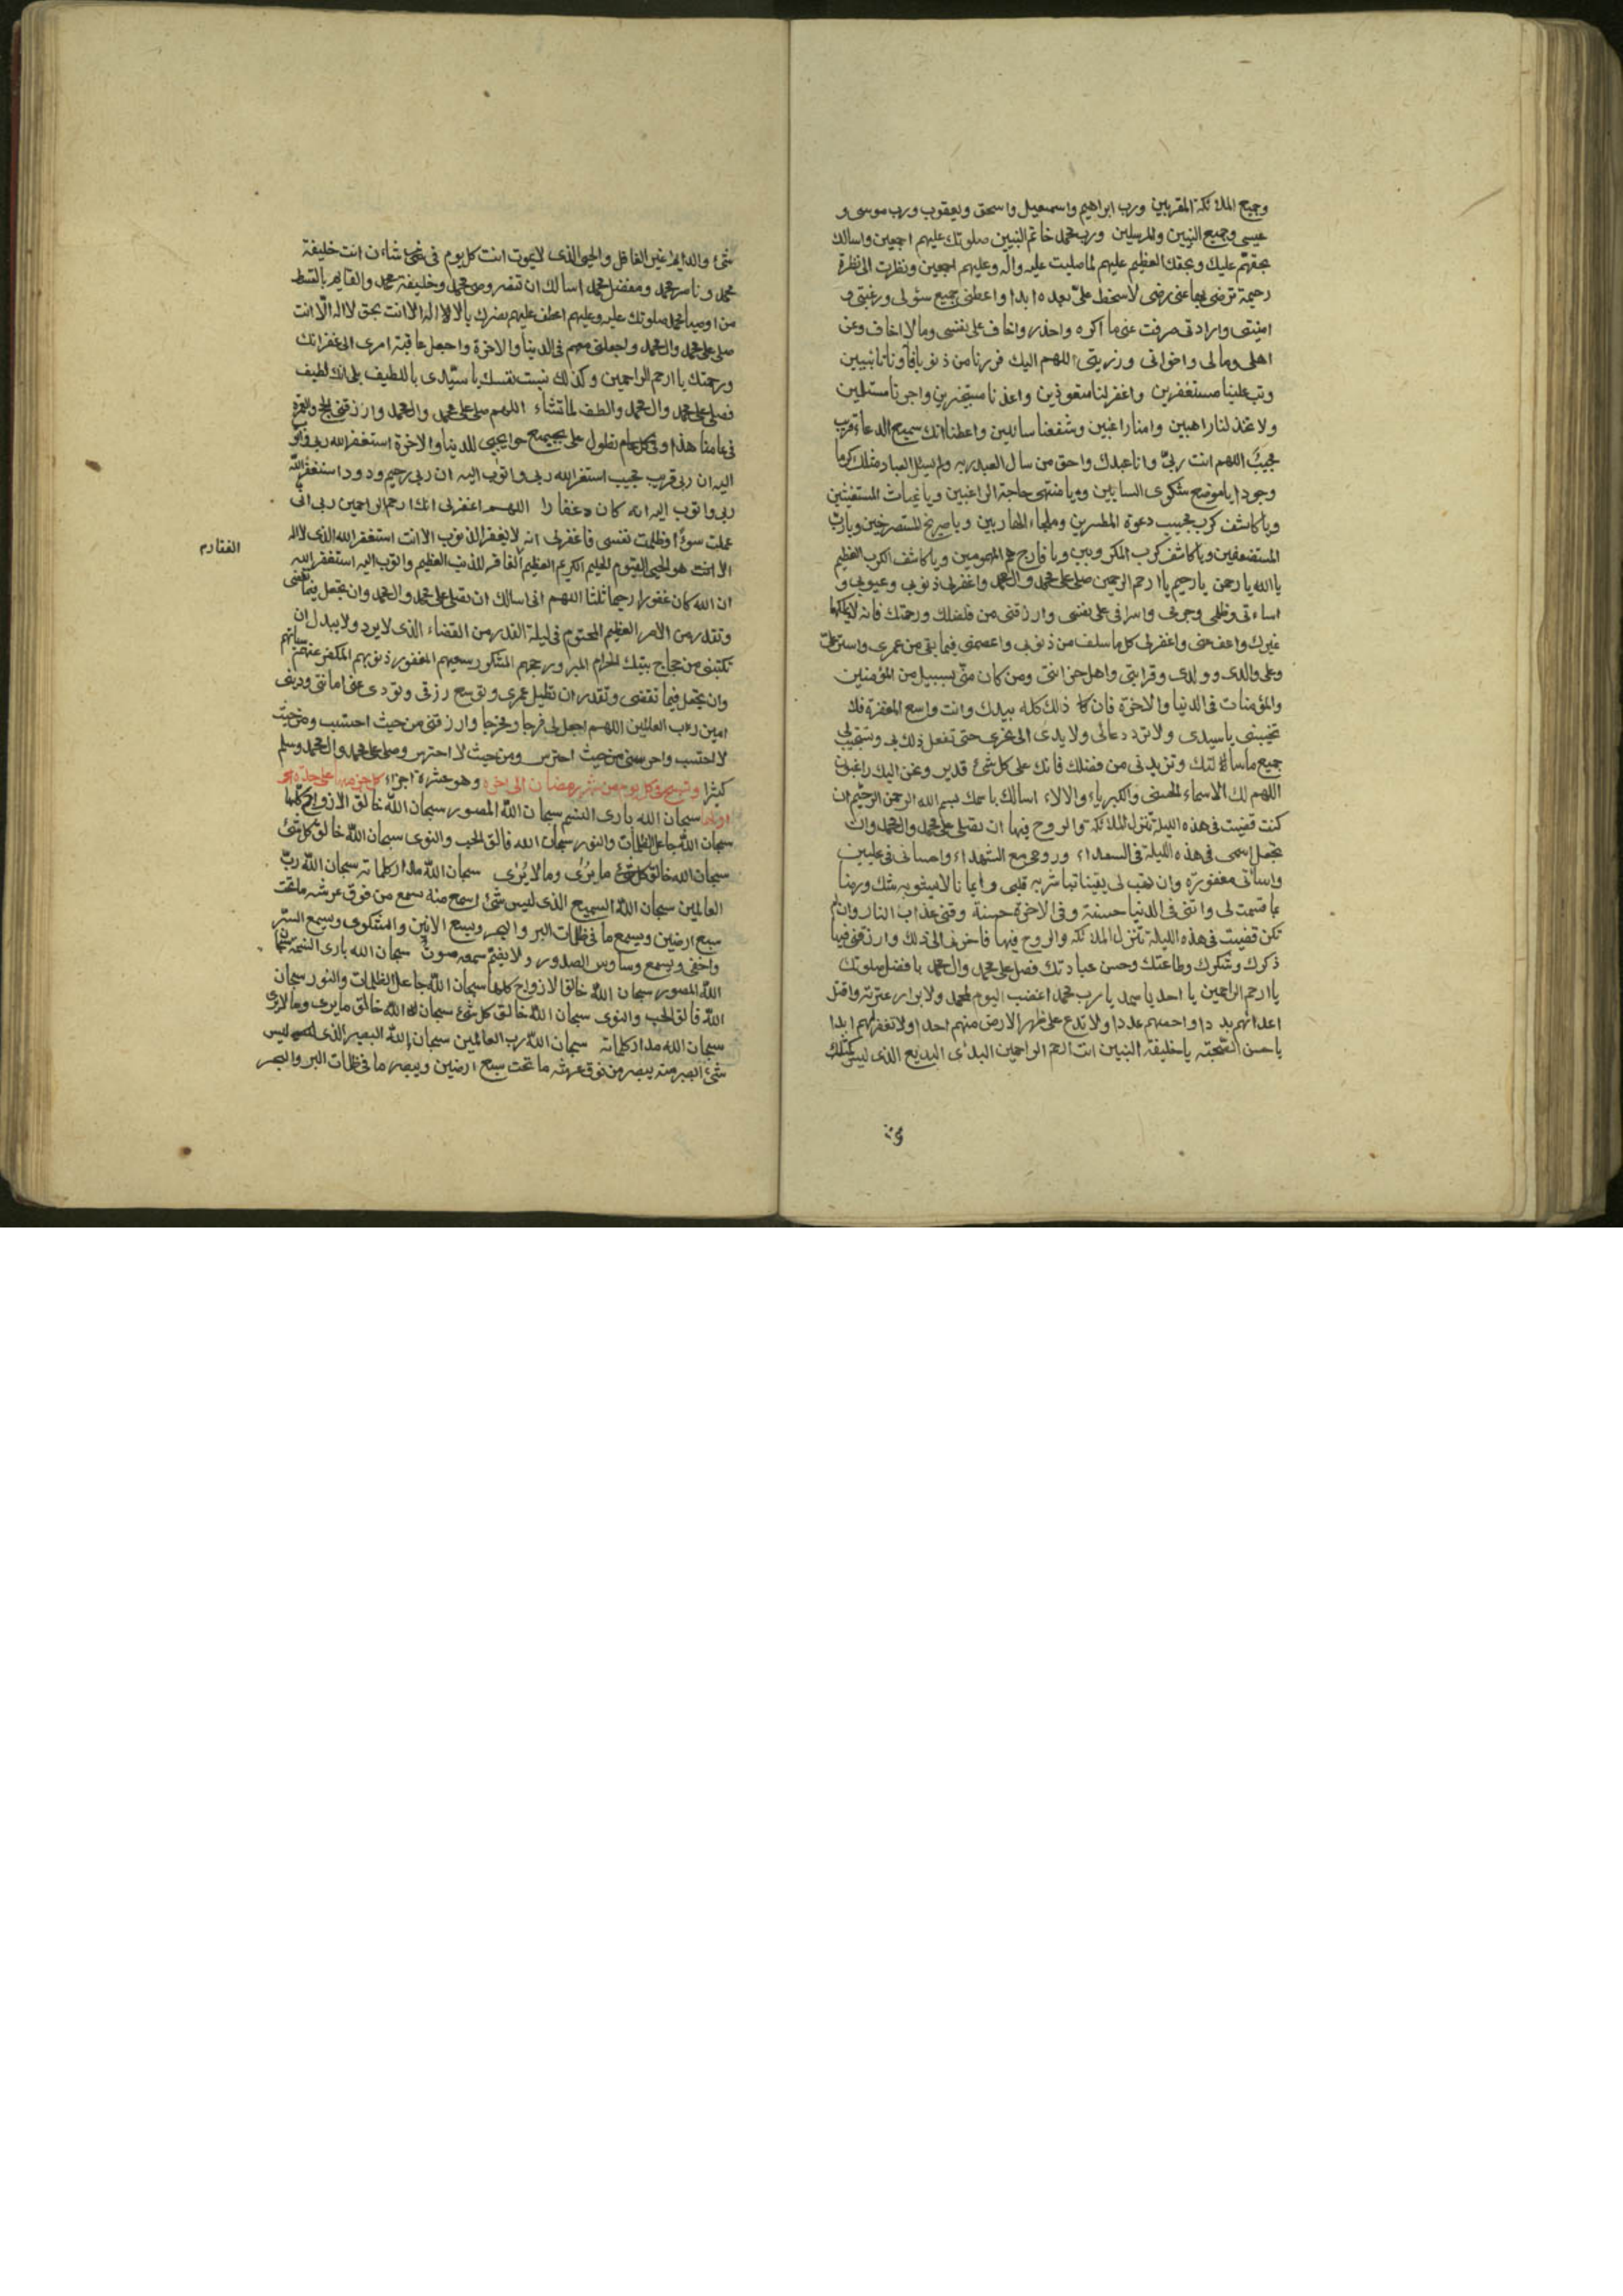 وجميع الملائكة المقربين ورب ابراهيم واسمعيل واسحق ويعقوب ورب موسى و
عيسى وجميع النبيين والمرسلين ورب محمد خاتم النبيين صلوتك عليهم اجمعين واسالك
بحقهم عليك وبحقك العظيم عليهم لما صليت عليه واله وعليهم اجمعين ونظرت الى نظرة
رحيمة ترضى بها عنى رضى لا سخط علىّ بعده ابدا واعطنى جميع سؤلى ورغبتى و
امنيتى وارادتى صرفت عنى ما اكره واحذر واخاف على نفسى وما لا اخاف وعن
اهلى ومالى واخوانى وذريتى اللهم اليك فررنا من ذنوبنا فآونا تائبين
وتب علينا مستغفرين واغفر لنا متعوذين واعذنا مستجيرين واجرنا مستسلمين
ولا تخذلنا راهبين وامنا راغبين وشفعنا سائلين واعطنا انك سميع الدعاء قريب
مجيبٌ اللهم انت ربىّ وانا عبدك واحق من سال العبد ربه ولم يسئل العباد مثلك كرما
وجودا يا موضع شكوى السايلين ويا منتهى حاجة الراغبين ويا غياث المستغيثين
ويا كاشف كرب مجيب دعوة المضطرين وملجاء الهاربين ويا صريخ المستصرخين ويا رب
المستضعفين ويا كاشف كرب المكروبين ويا فارج هم المهمومين ويا كاشف الكرب العظيم
يا الله يا رحمن يا رحيم يا ارحم الرحمين صلى على محمد وال محمد واغفر لى ذنوبى وعيوبى و
اساءتى وظلمى وجرمى واسرافى على نفسى وارزقنى من فضلك ورحمتك فانه لا يملكها
غيرك واعف عنى واغفر لى كل ما سلف من ذنوبى واعصمنى فيما بقى من عمرى واستر علىّ
وعلى والدى وولدى وقرابتى واهل حزانتى ومن كان منّى بسبيل من المؤمنين
والمؤمنات فى الدنيا والاخرة فان ذلك كله بيدك وانت واسع المغفرة فلا
تخيبنى يا سيدى ولا ترد دعائى ولا يدى الى نحرى حتى تفعل ذلك بى وتستجيب لى
جميع ما سالتك وتزيدنى من فضلك فانك على كل شئ قدير ونحن اليك راغبون
اللهم لك الاسماء الحسنى والكبرياء والالاء اسالك باسمك بسم الله الرحمن الرحيم ان
كنت قضيت فى هذه الليلة تنزل الملائكة والروح فيها ان تصلى على محمد وال محمد وان
تجعل اسمى فى هذه الليلة فى السعداء وروحى مع الشهداء واحسانى فى عليين
واسائتى مغفورة وان تهب لى يقينا تباشر به قلبى وايمانا لا يشوبه شك ورضا
بما قسمت لى واتنى فى الدنيا حسنة وفى الاخرة حسنة وقنى عذاب النار وان لم
تكن قضيت فى هذه الليلة تنزل الملائكة والروح فيها فاخرنى الى ذلك وارزقنى فيها
ذكرك وشكرك وطاعتك وحسن عبادتك فصل على محمد وال محمد بافضل صلوتك
يا ارحم الراحمين يا احد يا صمد يا رب محمد اغضب اليوم لمحمد ولابرار عترته واقتل
اعدائهم بددا واحصهم عددا ولا تدع على ظهر الارض منهم احدا ولا تغفر لهم ابدا
يا حسن الصحبة يا خليفة النبيين انت ارحم الراحمين البدئ البديع الذى ليس كمثلك
شئ
شئ والدايم غير الغافل والحى الذى لا يموت انت كل يوم فى شان انت خليفة
محمد وناصر محمد ومفضل محمد اسالك ان تنصر وصى محمد وخليفة محمد والقايم بالقسط
من اوصياء محمد صلوتك عليه وعليهم اعطف عليهم نصرك يا لا اله الا انت بحق لا اله الا انت
صلى على محمد وال محمد واجعلنى معهم فى الدنيا والاخرة واجعل عاقبة امرى الى غفرانك
ورحمتك يا ارحم الراحمين وكذلك نسبت نفسك يا سيّدى باللطيف بلى انك لطيف
فصلى على محمد وال محمد والطف لما تشاء اللهم صلى على محمد وال محمد وارزقنى الحج والعمرة
فى عامنا هذا وفى كل عام تطول على بجميع حوايجى للدنيا والاخرة استغفر الله ربى واتوب
اليه ان ربى قريب مجيب استغفر الله ربى واتوب اليه ان ربى رحيم ودود استغفر الله
ربى واتوب اليه انه كان غفارا اللهم اغفر لى انك ارحم الراحمين رب انى
عملت سوءًا وظلمت نفسى فاغفر لى انه لا يغفر الذنوب الا انت استغفر الله الذى لا اله
الا هو الحى القيوم الحليم الكريم العظيم الغافر للذنب العظيم واتوب اليه استغفر الله
ان الله كان غفورا رحيما ثلثا اللهم انى اسالك ان تصلى على محمد وال محمد وان تجعل فيما تقضى
وتقدر من الامر العظيم المحتوم فى ليلة القدر من القضاء الذى لا يرد ولا يبدل ان
تكتبنى من حجاج بيتك الحرام المبرور حجهم المشكور سعيهم المغفور ذنوبهم المكفر عنهم سيئاتهم
وان تجعل فيما تقضى وتقدر ان تطيل عمرى وتوسع رزقى وتودى عنى امانتى ودينى
امين رب العالمين اللهم اجعل لى فرجا ومخرجا وارزقنى من حيث احتسب ومن حيث
لا احتسب واحرسنى من حيث احترس ومن حيث لا احترس وصلى على محمد وال محمد وسلم
كثيرا وتسبح فى كل يوم من شهر رمضان الى اخره وهو عشرة اجزاء كل جزء منها على حدة
اولها سبحان الله بارئ النسم سبحان الله المصور سبحان الله خالق الازواج كلها
سبحان الله جاعل الظلمات والنور سبحان الله فالق الحب والنوى سبحان الله خالق كل شئ
سبحان الله خالق كل شئ ما يُرى وما لا يُرى سبحان الله مداد كلماته سبحان الله ربّ
العالمين سبحان الله السميع الذى ليس شئ اسمع منه يسمع من فوق عرشه ما تحت
سبع ارضين ويسمع ما فى ظلمات البر والبحر ويسمع الانين والشكوى ويسمع السّر
واخفى ويسمع وساوس الصدور ولا يصم سمعه صوت سبحان الله بارئ النسم سبحان
الله المصور سبحان الله خالق الازواج كلها سبحان الله جاعل الظلمات والنور سبحان
الله فالق الحب والنوى سبحان الله خالق كل شئ سبحان الله خالق ما يرى وما لا يرى
سبحان الله مداد كلماته سبحان الله رب العالمين سبحان الله البصير الذى ليس
شئ ابصر منه يبصر من فوق عرشه ما تحت سبع ارضين ويبصر ما فى ظلمات البر والبحر